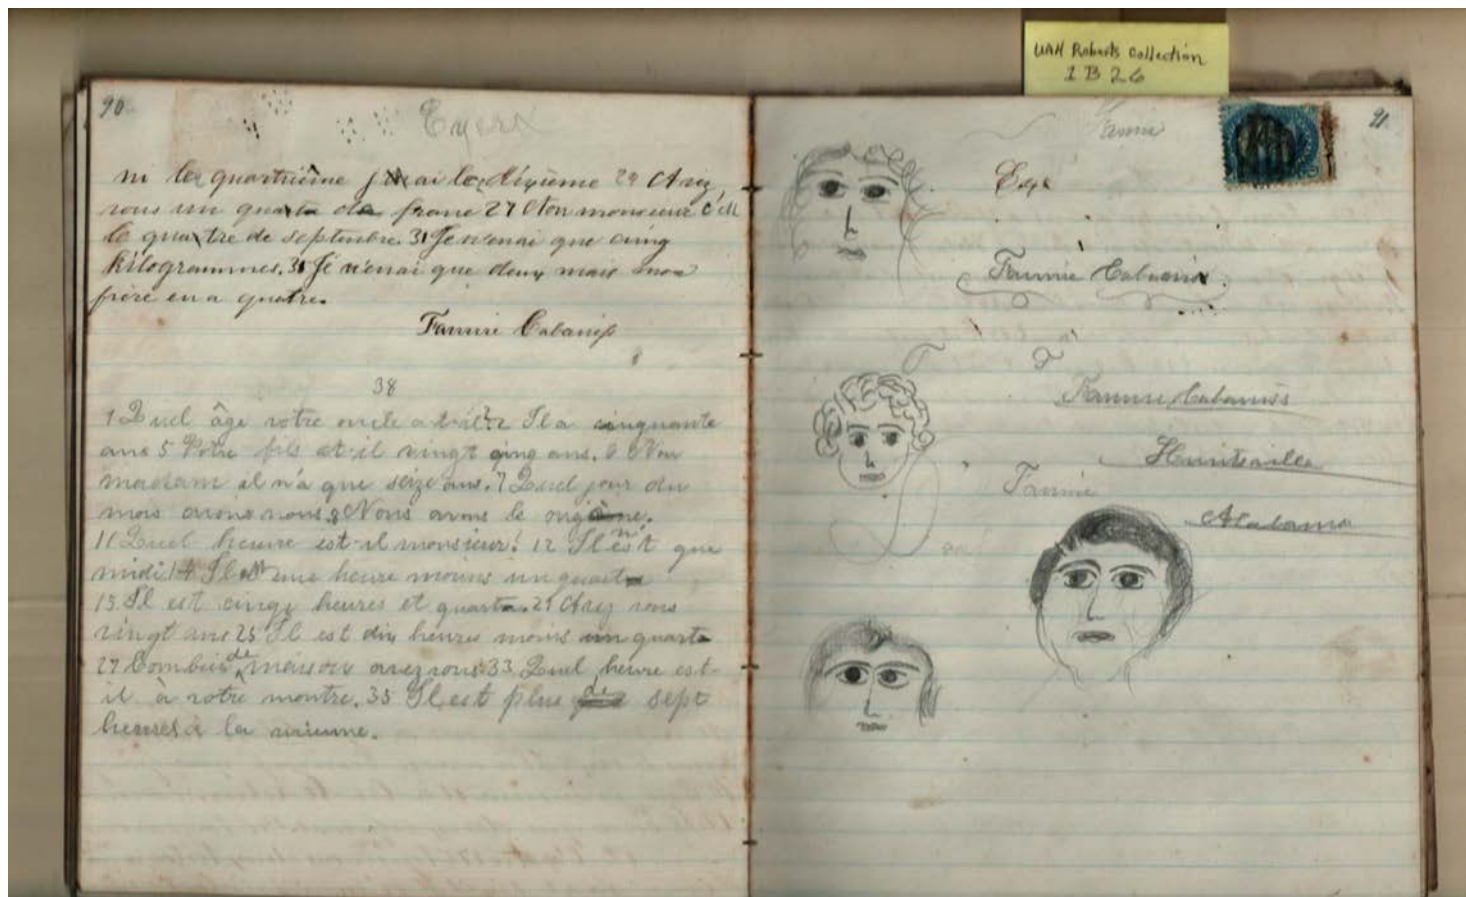 UAH Roberts Collection
1 B 26
90
ni le quartrième j'ai le dixième 24 Avez
vous un quart de franc 27 Non monsieur c'est
le quatre de septembre. 31 Je n'enai que cinq
kilogrammes. 36 Je n'enai que deux mais mon
frère en a quatre.
Fannie Cabaniss
38
1 Quel âge votre oncle a t-il? 2 Il a cinquante
ans 5 Votre fils at-il vingt cinq ans. 6 Non
madam il n'a que seize ans. 7 Quel jour du
mois avons nous. 8 Nous avons le onzième.
11 Quel heure est-il monsieur? 12 Il n'est que
midi 14 Il est une heure moins un quart
15 Il est cinq heures et quart. 21 Avez vous
vingt ans 25 Il est dix heures moins un quart
27 Combien de maisons avez vous 33 Quel heure est-
il à votre montre. 35 Il est plus de sept
heures à la mienne.
91
Fannie
Exe
Fannie Cabaniss
F F
Fannie Cabaniss
Huntsville
Fannie
Alabama